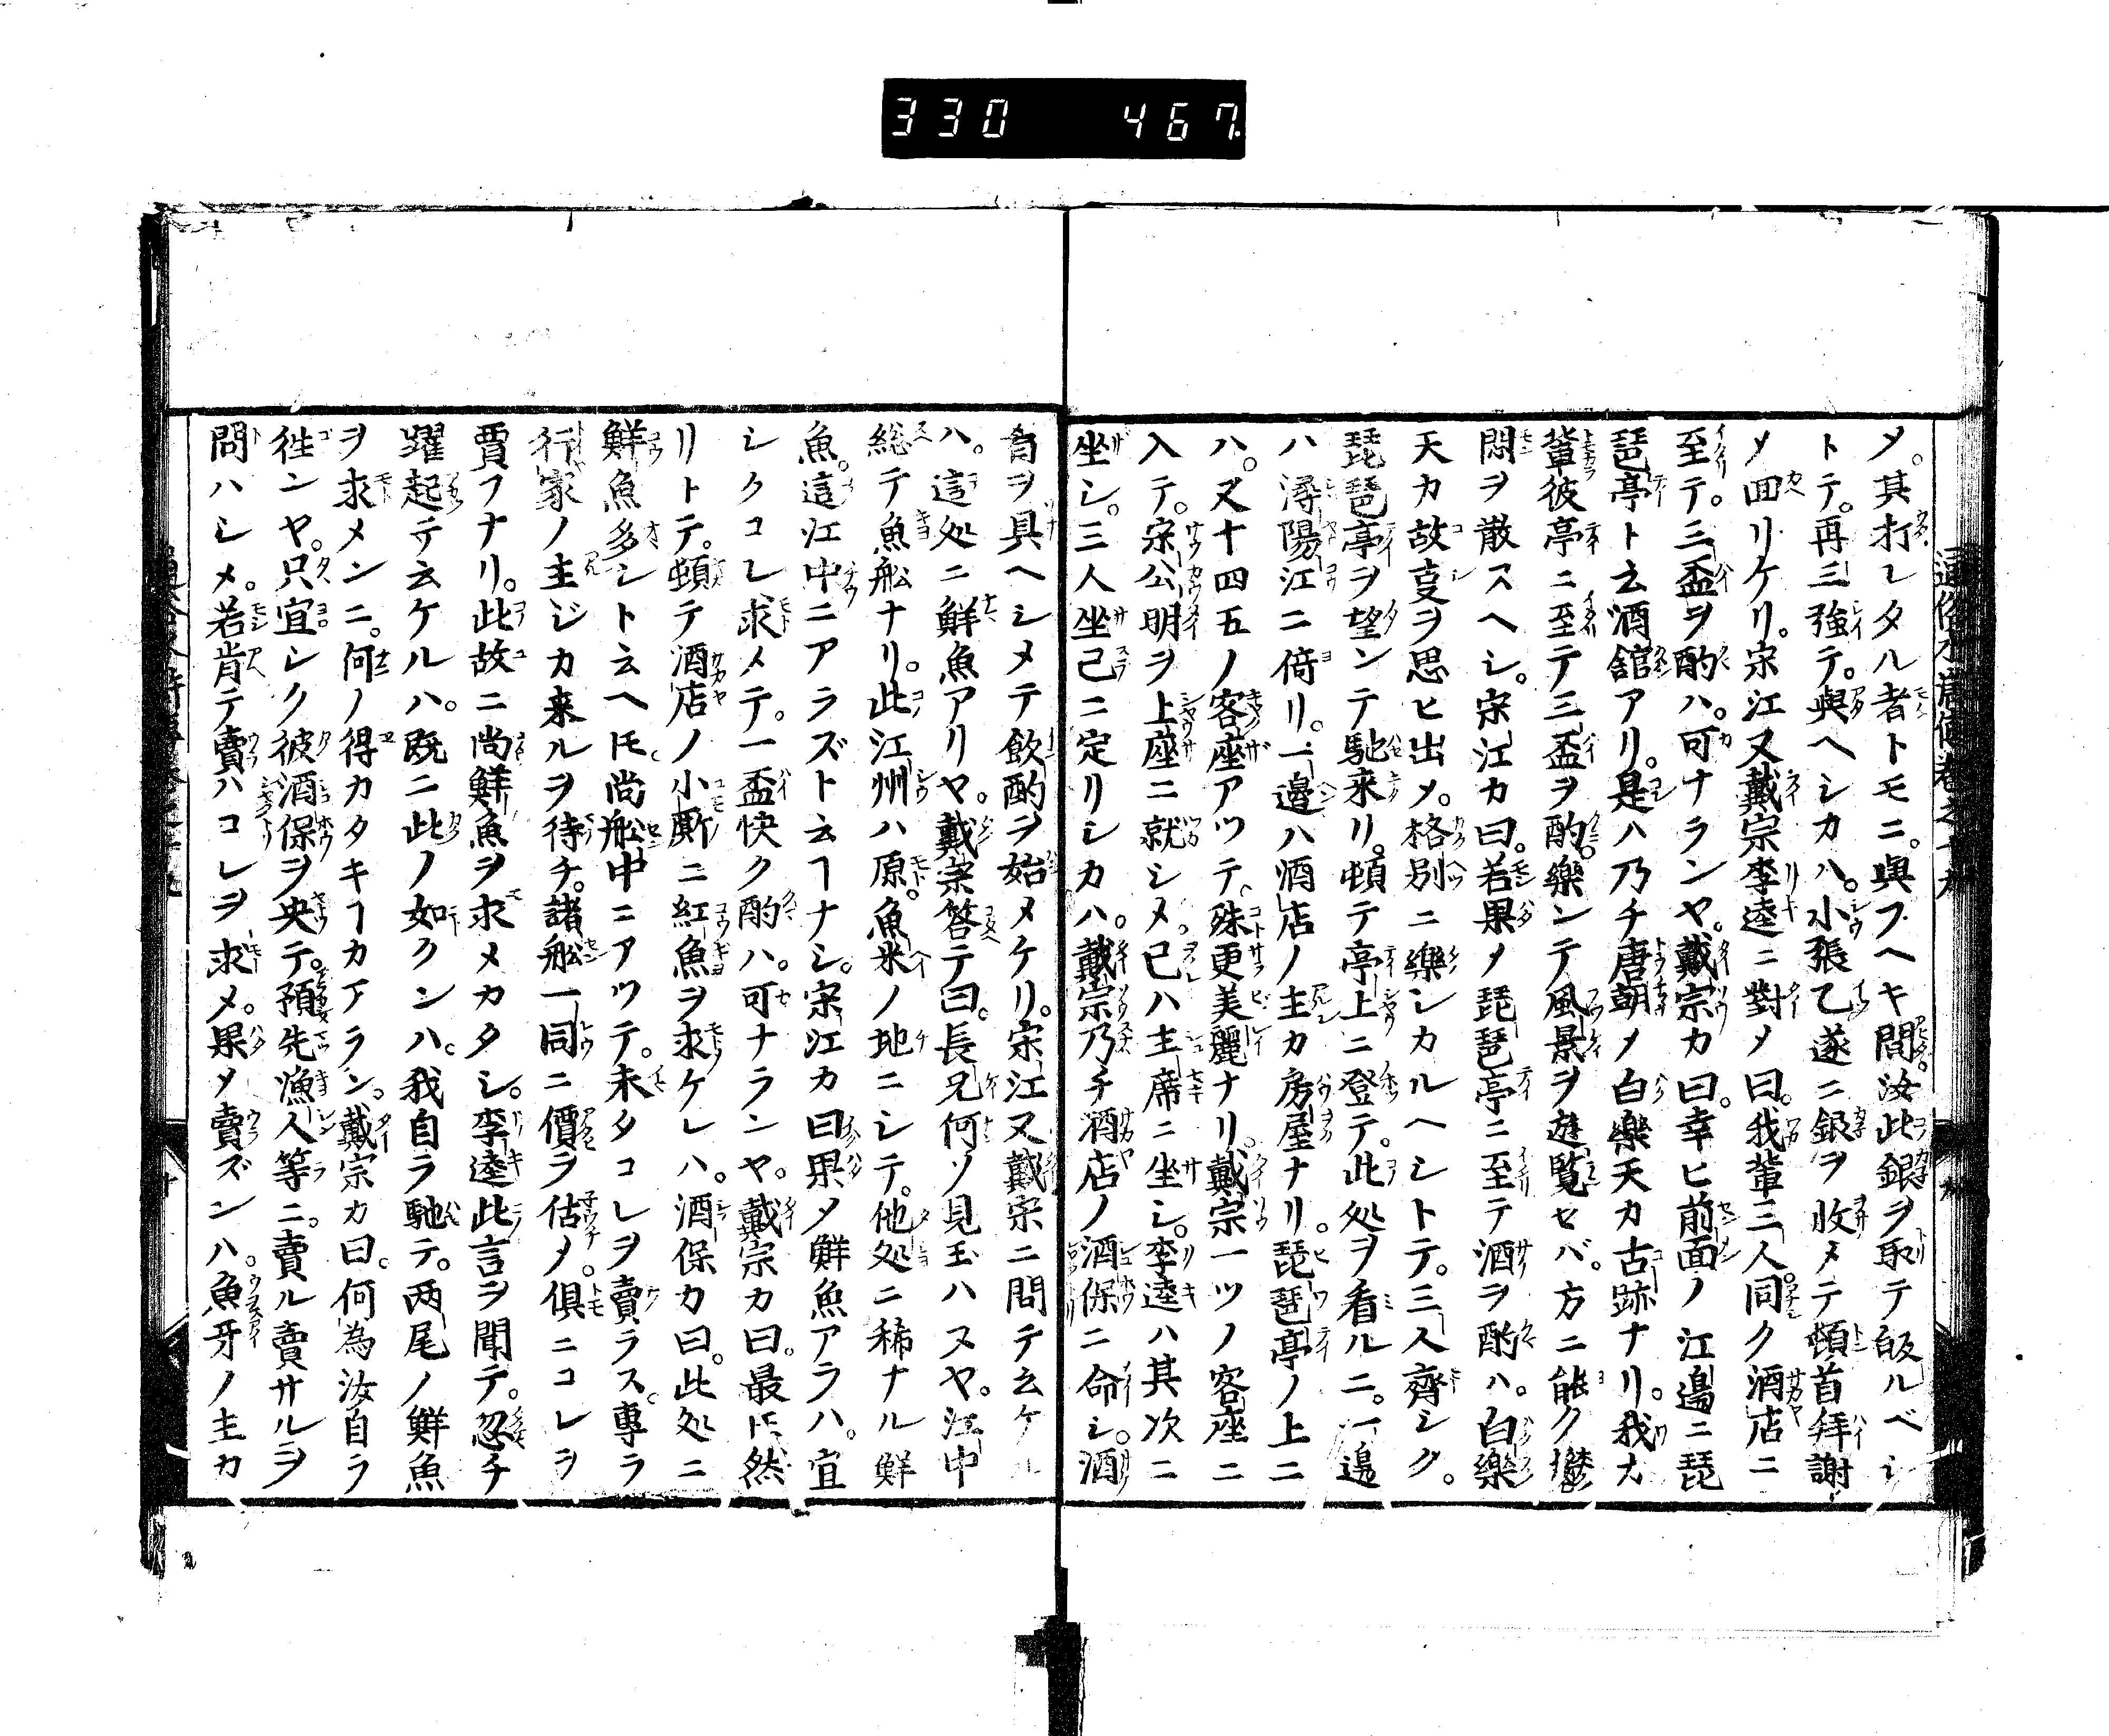 330 467
通俗水滸傳巻之十九
メ。其打レタル者トモニ。與フヘキ間。汝此銀ヲ取テ皈ルベシ
トテ。再三強テ。與ヘシカハ。小張乙遂ニ銀ヲ收メテ頓首拜謝
メ回リケリ。宋江又戴宗李逵ニ對メ曰。我輩三人同ク酒店ニ
至テ。三盃ヲ酌ハ。可ナランヤ。戴宗カ曰。幸ヒ前面ノ江邉ニ琵
琶亭ト云酒舘アリ。是ハ乃チ唐朝ノ白樂天カ古跡ナリ。我カ
輩彼亭ニ至テ三盃ヲ酌。樂ンテ風景ヲ遊覧セバ。方ニ能ク欝
悶ヲ散スヘシ。宋江カ曰。若果メ琵琶亭ニ至テ酒ヲ酌ハ。白樂
天カ故叓ヲ思ヒ出メ。格別ニ樂シカルヘシトテ。三人齊シク。
琵琶亭ヲ望ンテ馳来リ。頓テ亭上ニ登テ。此処ヲ看ルニ。一邉
ハ潯陽江ニ倚リ。一邉ハ酒店ノ主カ房屋ナリ。琵琶亭ノ上ニ
ハ。又十四五ノ客座アツテ。殊更美麗ナリ。戴宗一ツノ客座ニ
入テ。宋公明ヲ上座ニ就シメ。己ハ主席ニ坐シ。李逵ハ其次ニ
坐シ。三人坐已ニ定リシカハ。戴宗乃チ酒店ノ酒保ニ命シ。酒
肴ヲ具ヘシメテ飲酌ヲ始メケリ。宋江又戴宗ニ問テ云ケル
ハ。這処ニ鮮魚アリヤ。戴宗答テ曰。長兄何ソ見玉ハスヤ。江中
総テ魚舩ナリ。此江州ハ原。魚米ノ地ニシテ。他処ニ稀ナル鮮
魚。這江中ニアラズト云ヿナシ。宋江カ曰果メ鮮魚アラハ。宜
シクコレ求メテ。一盃快ク酌ハ。可ナランヤ。戴宗カ曰。最モ然
リトテ。頓テ酒店ノ小厮ニ紅魚ヲ求ケレハ。酒保カ曰。此処ニ
鮮魚多シト云ヘ𪜈尚舩中ニアツテ。未タコレヲ賣ラス。專ラ
行家ノ主ジカ来ルヲ待チ。諸舩一同ニ價ヲ估メ。俱ニコレヲ
賈フナリ。此故ニ尚鮮魚ヲ求メカタシ。李逵此言ヲ聞テ。忽チ
躍起テ云ケルハ。既ニ此ノ如クンハ。我自ラ馳テ。両尾ノ鮮魚
ヲ求メンニ。何ノ得カタキヿカアラン。戴宗カ曰。何為汝自ラ
徃ンヤ。只宜シク彼酒保ヲ央テ。預先漁人等ニ。賣ル賣サルヲ
問ハシメ。若肯テ賣ハコレヲ求メ。果メ賣ズンハ。魚牙ノ主カ